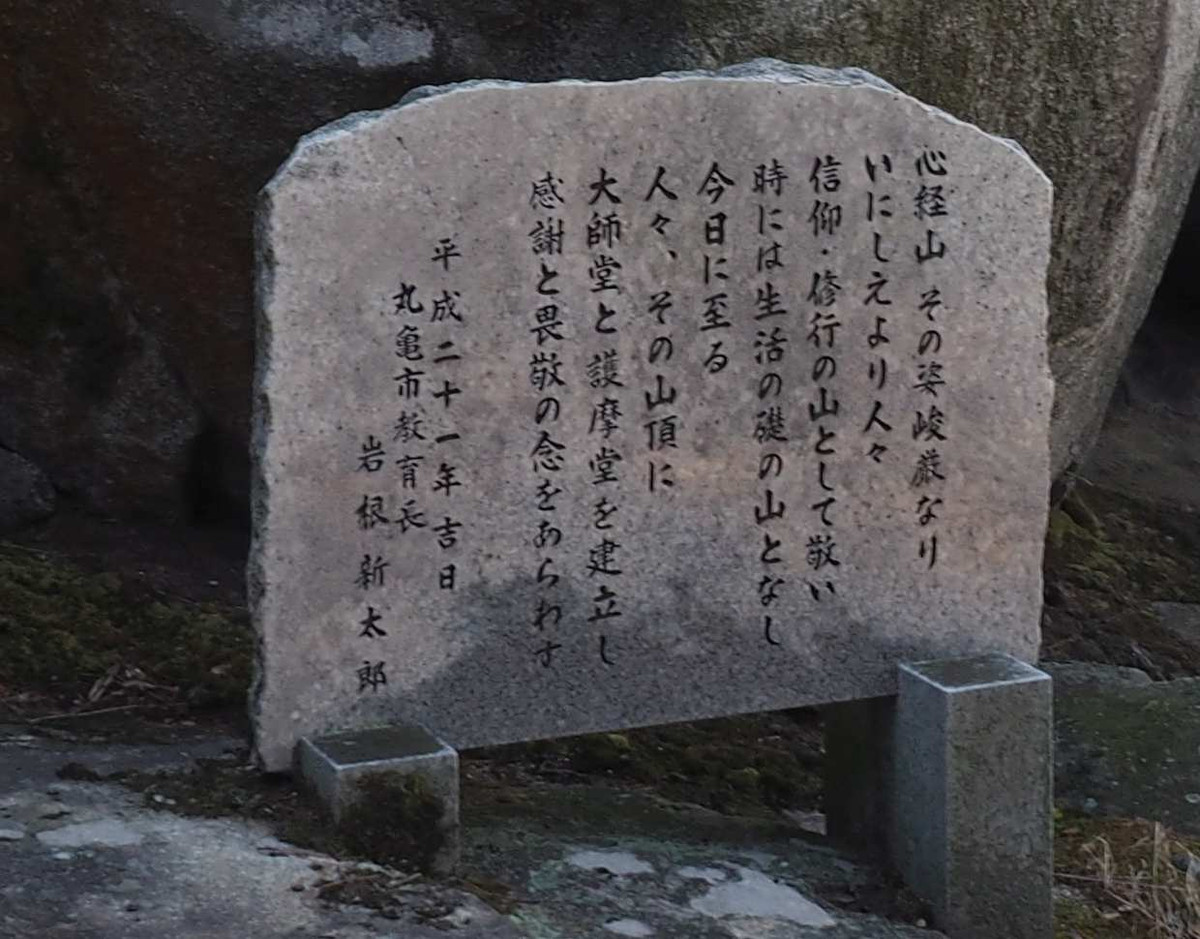 心経山 その姿峻厳なり
いにしえより人々
信仰・修行の山として敬い
時には生活の礎の山となし
今日に至る
人々、その山頂に
大師堂と護摩堂を建立し
感謝と畏敬の念をあらわす
平成二十一年吉日
丸亀市教育長
岩根新太郎